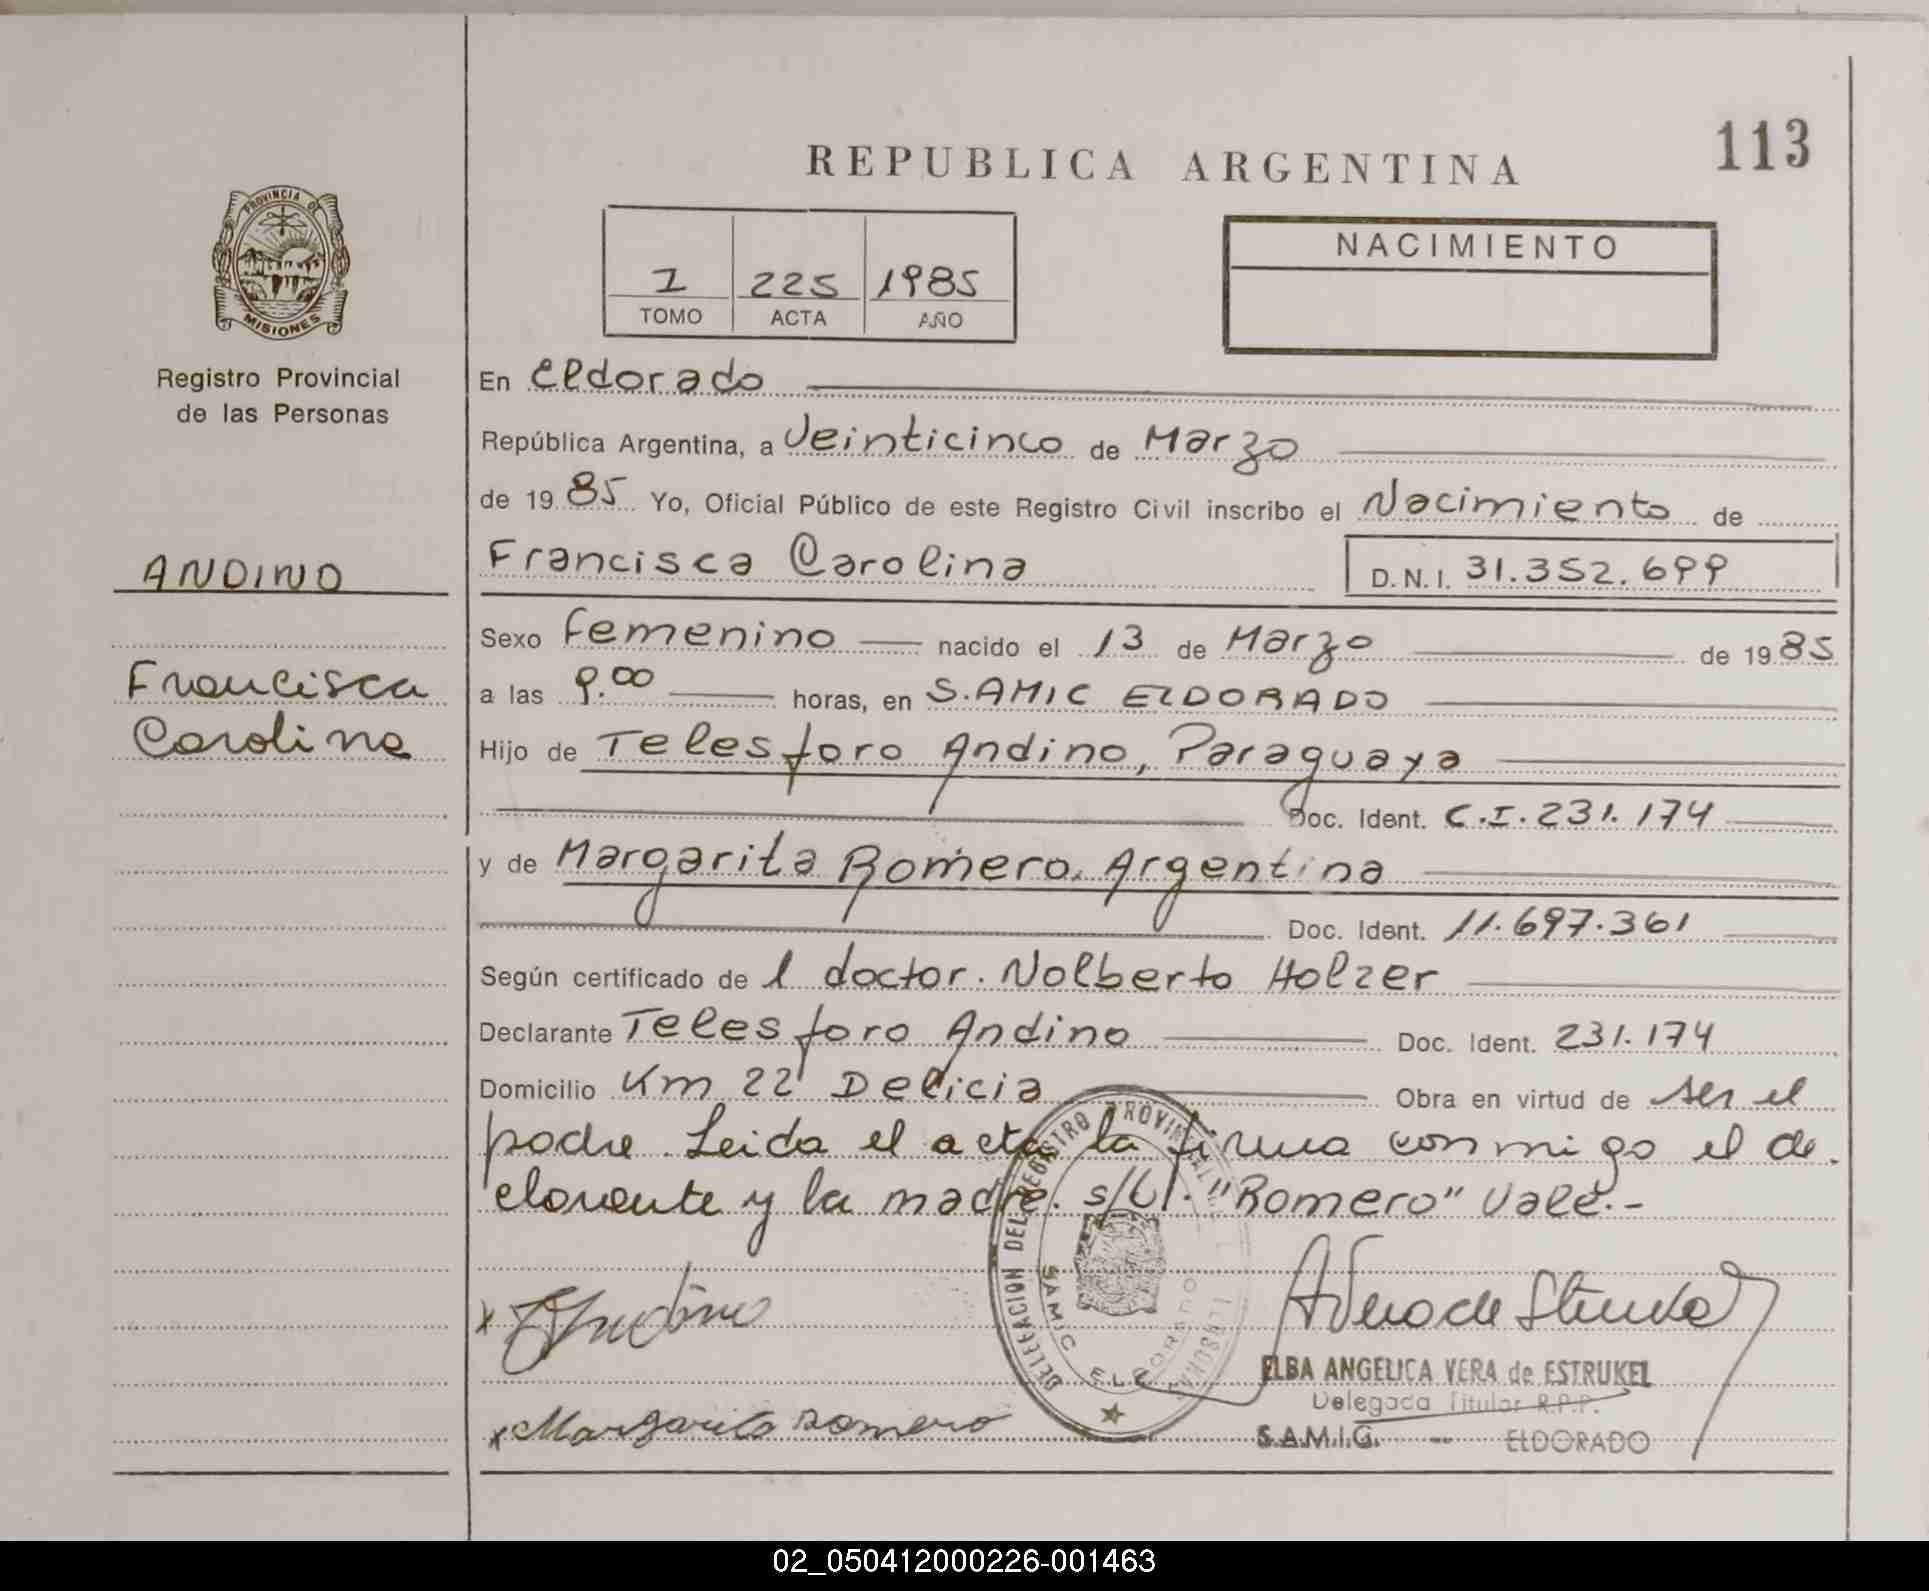 113
REPUBLICA ARGENTINA
PROVINCIA DE
MISIONES
Registro Provincial
de las Personas
I 225 1985
TOMO ACTA AÑO
NACIMIENTO
En Eldorado
República Argentina, a Veinticinco de Marzo
de 1985 Yo, Oficial Público de este Registro Civil inscribo el Nacimiento de
ANDINO
Francisca Carolina
D.N.I. 31.352.699
Francisca
Carolina
Sexo Femenino nacido el 13 de Marzo de 1985
a las 9.00 horas, en S.AMIC ELDORADO
Hijo de Telesforo Andino, Paraguaya
Doc. Ident. C.I. 231.174
y de Margarita Romero. Argentina
Doc. Ident. 11.697.361
Según certificado de l doctor. Nolberto Holzer
Declarante Telesforo Andino Doc. Ident. 231.174
Domicilio Km 22 Delicia Obra en virtud de ser el
padre. Leida el acta la firma conmigo el de-
clarante y la madre. s/l. "Romero" Vale.-
DELEGACION DEL REGISTRO PROVINCIAL
SAMIC ELDORADO
x Andino
x Margarita Romero
ELBA ANGELICA VERA de ESTRUKEL
Delegada Titular R.P.P.
S.A.M.I.C. - ELDORADO
02_050412000226-001463